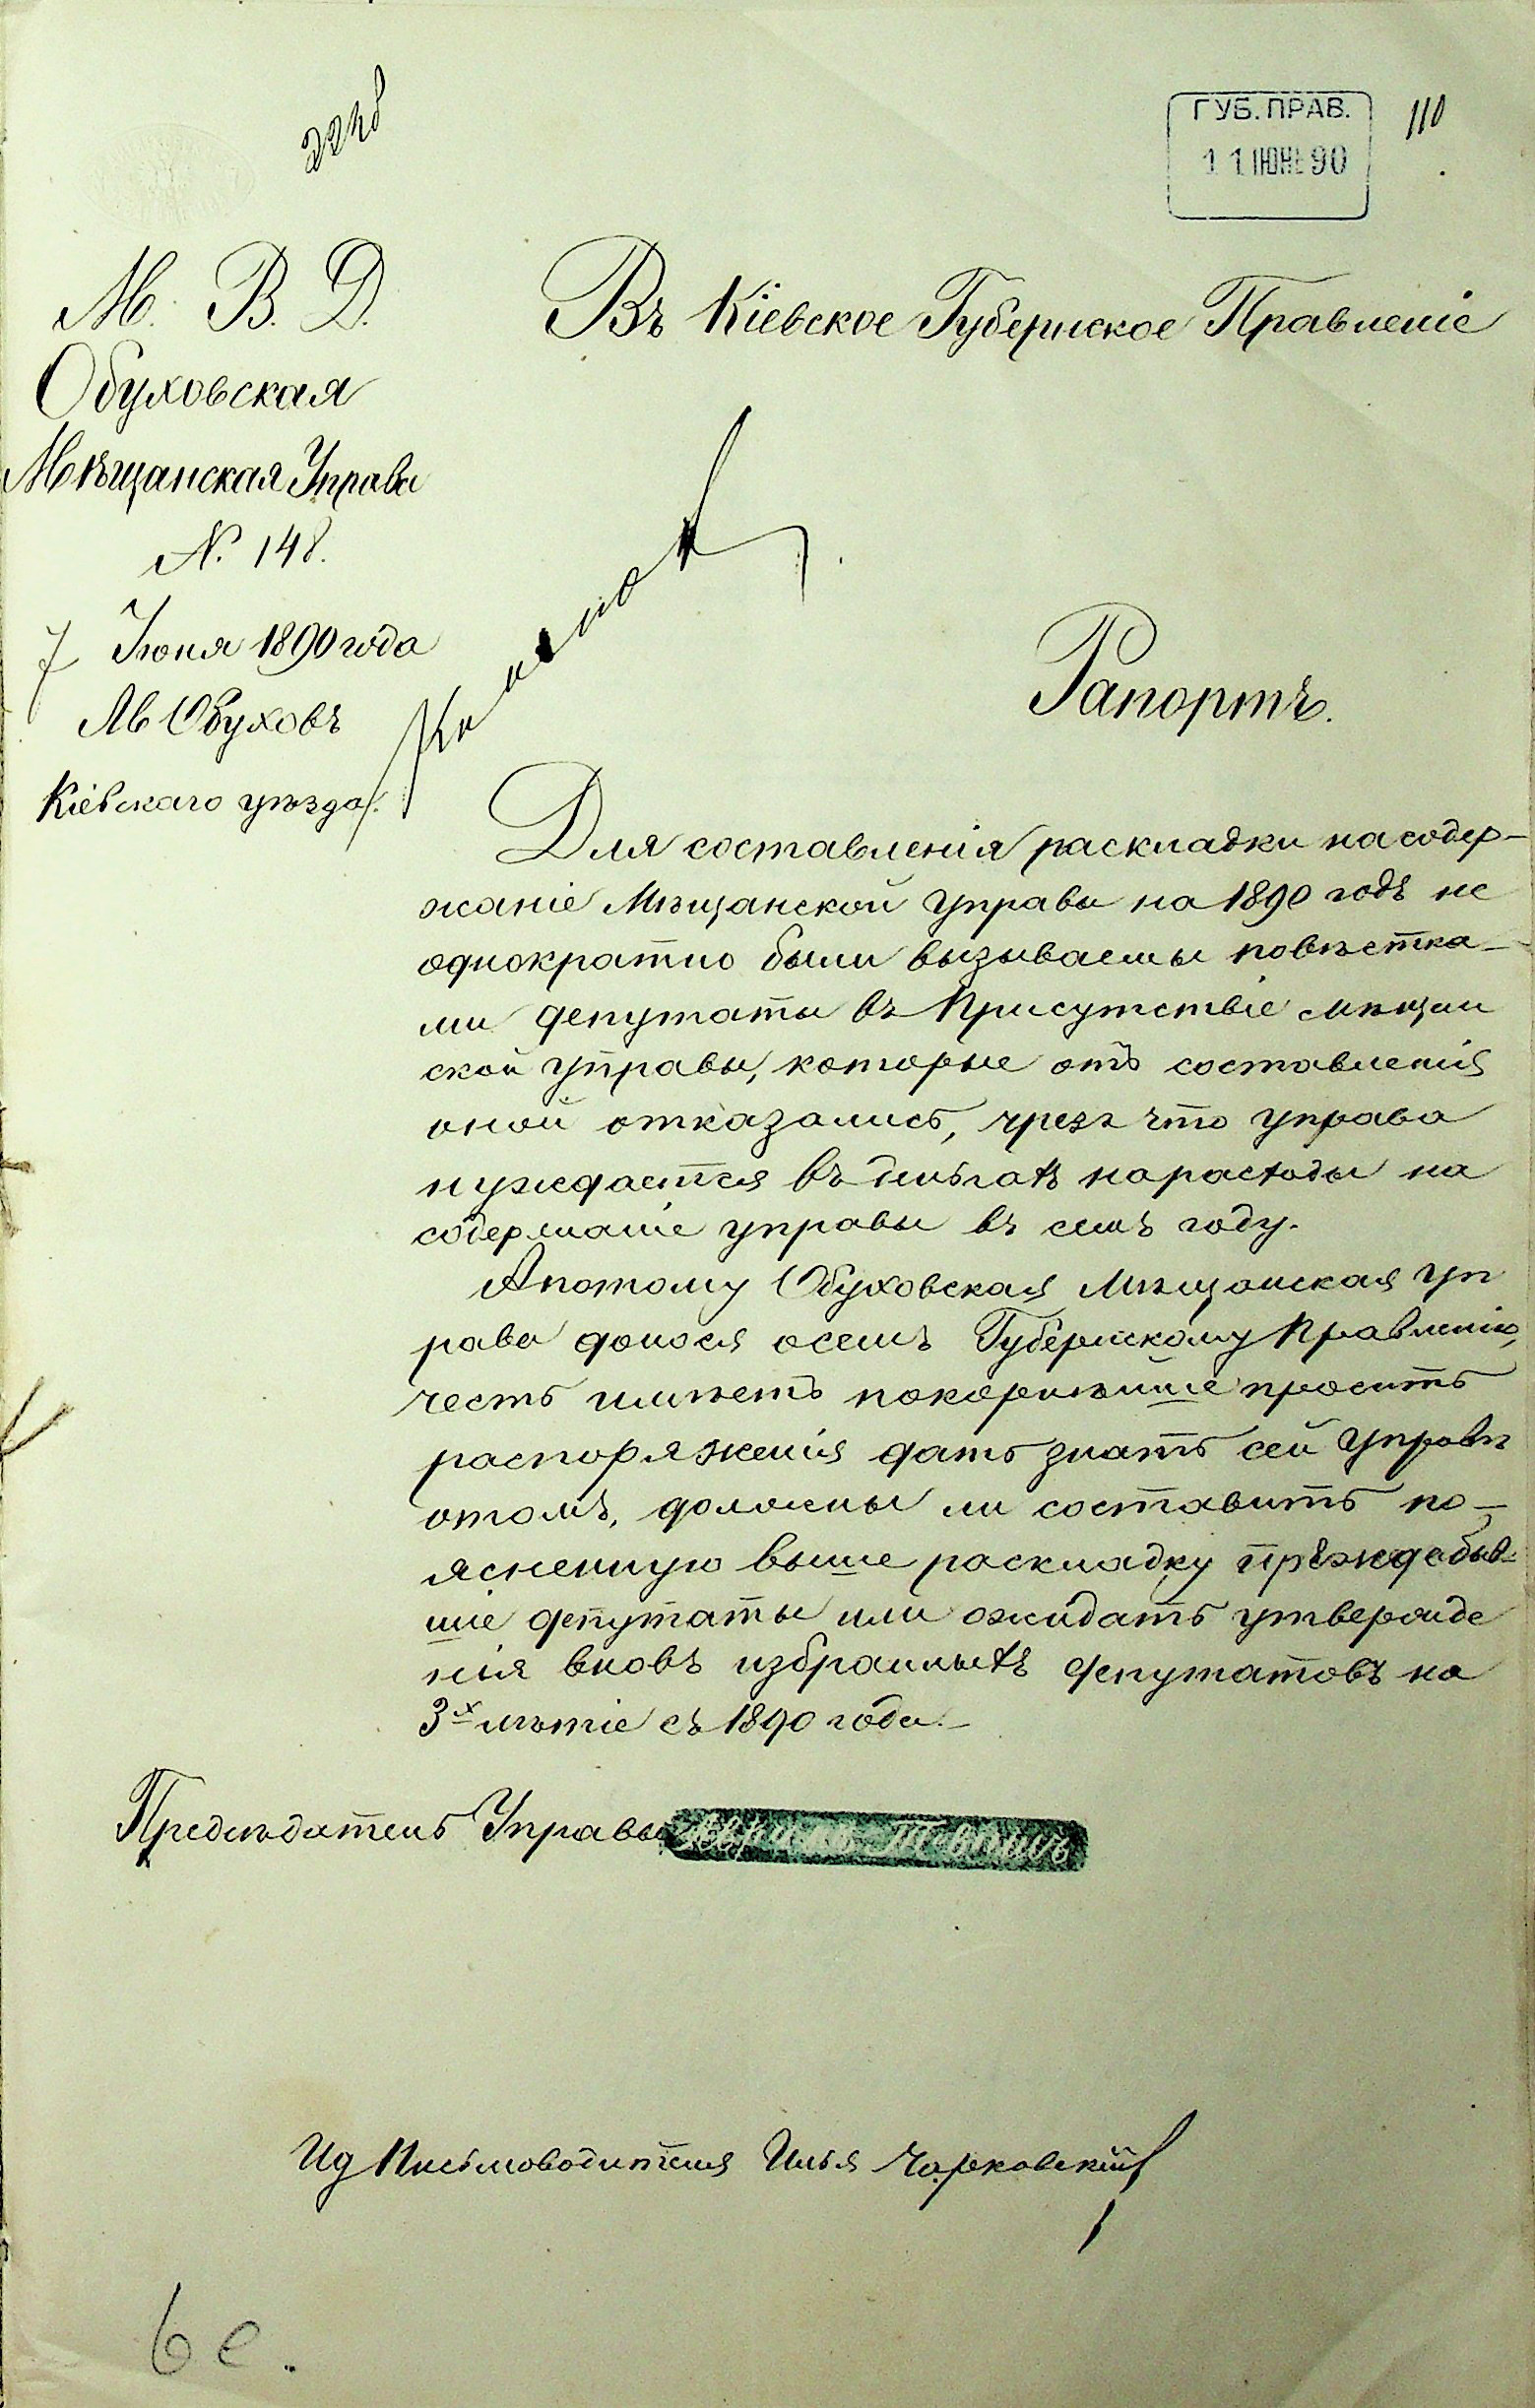 2248
ГУБ. ПРАВ.
11 ІЮНЕ 90
110
М. В. Д.
Обуховская
Мѣщанская Управа
№. 148.
7 Іюня 1890 года
М Обуховъ
Кіевскаго уѣзда.
Въ Кіевское Губернское Правленіе
Рапортъ.
Для составленія раскладки на содер-
жаніе Мѣщанской управы на 1890 годъ не
однократно были вызываемы повѣстка-
ми депутаты въ Присутствіе мѣщан
ской управы, которые отъ составленія
оной отказались, чрезъ что управа
нуждается въ деньгахъ на расходы на
содержаніе управы въ семъ году.
А потому Обуховская Мѣщанская Уп
рава донося о семъ Губернскому Правленію,
честь имѣетъ покорнѣйше просить
распоряженія дать знать сей Управѣ
о томъ, должны ли составить по-
ясненную выше раскладку прежде быв-
шіе депутаты или ожидать утвержде
нія вновь избранныхъ депутатовъ на
3х лѣтіе съ 1890 года.-
Предсѣдатель Управы
Ид Письмоводителя Илья Чарковскій
6 е.